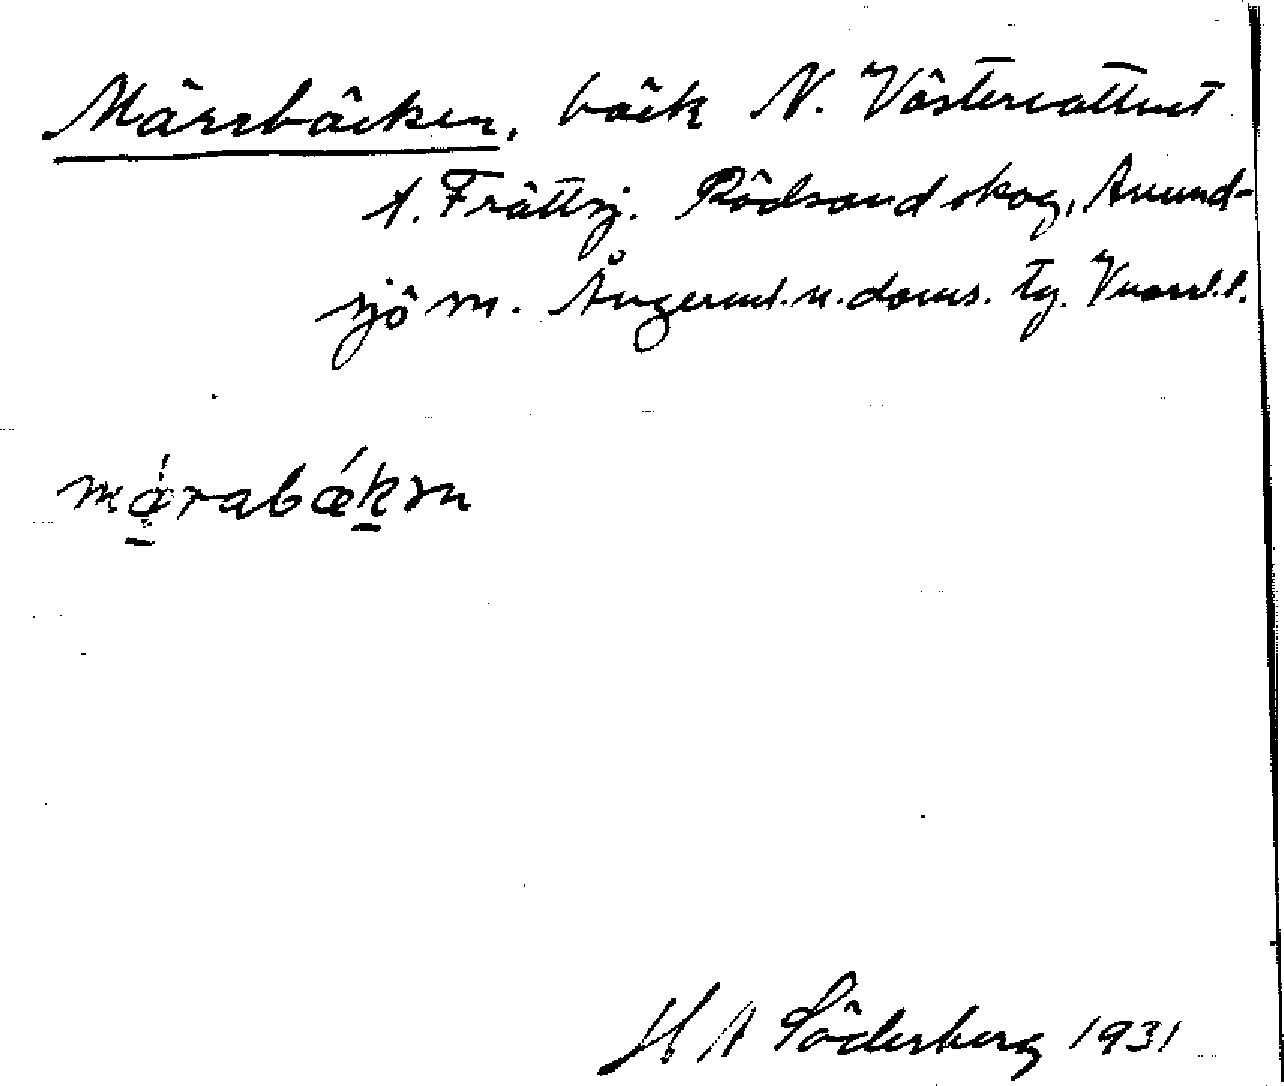 Märrbäcken, bäck N. Västervattnet
t. Frättsj. Rödsand skog, Anund-
sjö sn. Ångerml. n. doms. tg. Vnorrl. l.
mæ̀rabǽkṇ
H A Söderberg 1931